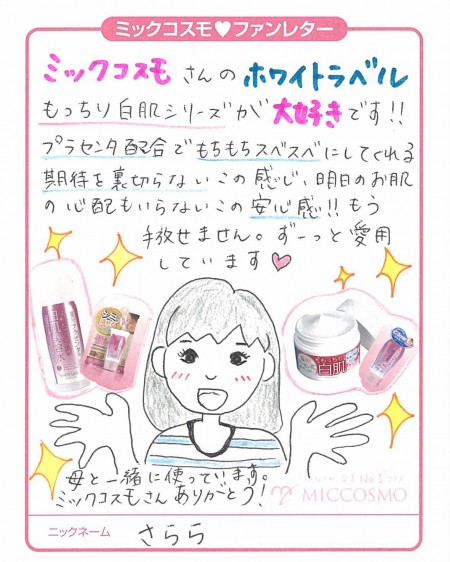 ミックコスモ♥ファンレター
ミックコスモさんのホワイトラベル
もっちり白肌シリーズが大好きです!!
プラセンタ配合でもちもちスベスベにしてくれる
期待を裏切らないこの感じ、明日のお肌
の心配もいらないこの安心感!!もう
手放せません。ずーっと愛用
しています♥
シミ
白肌
母と一緒に使っています。
ミックコスモさんありがとう!
MICCOSMO
ニックネーム さらら